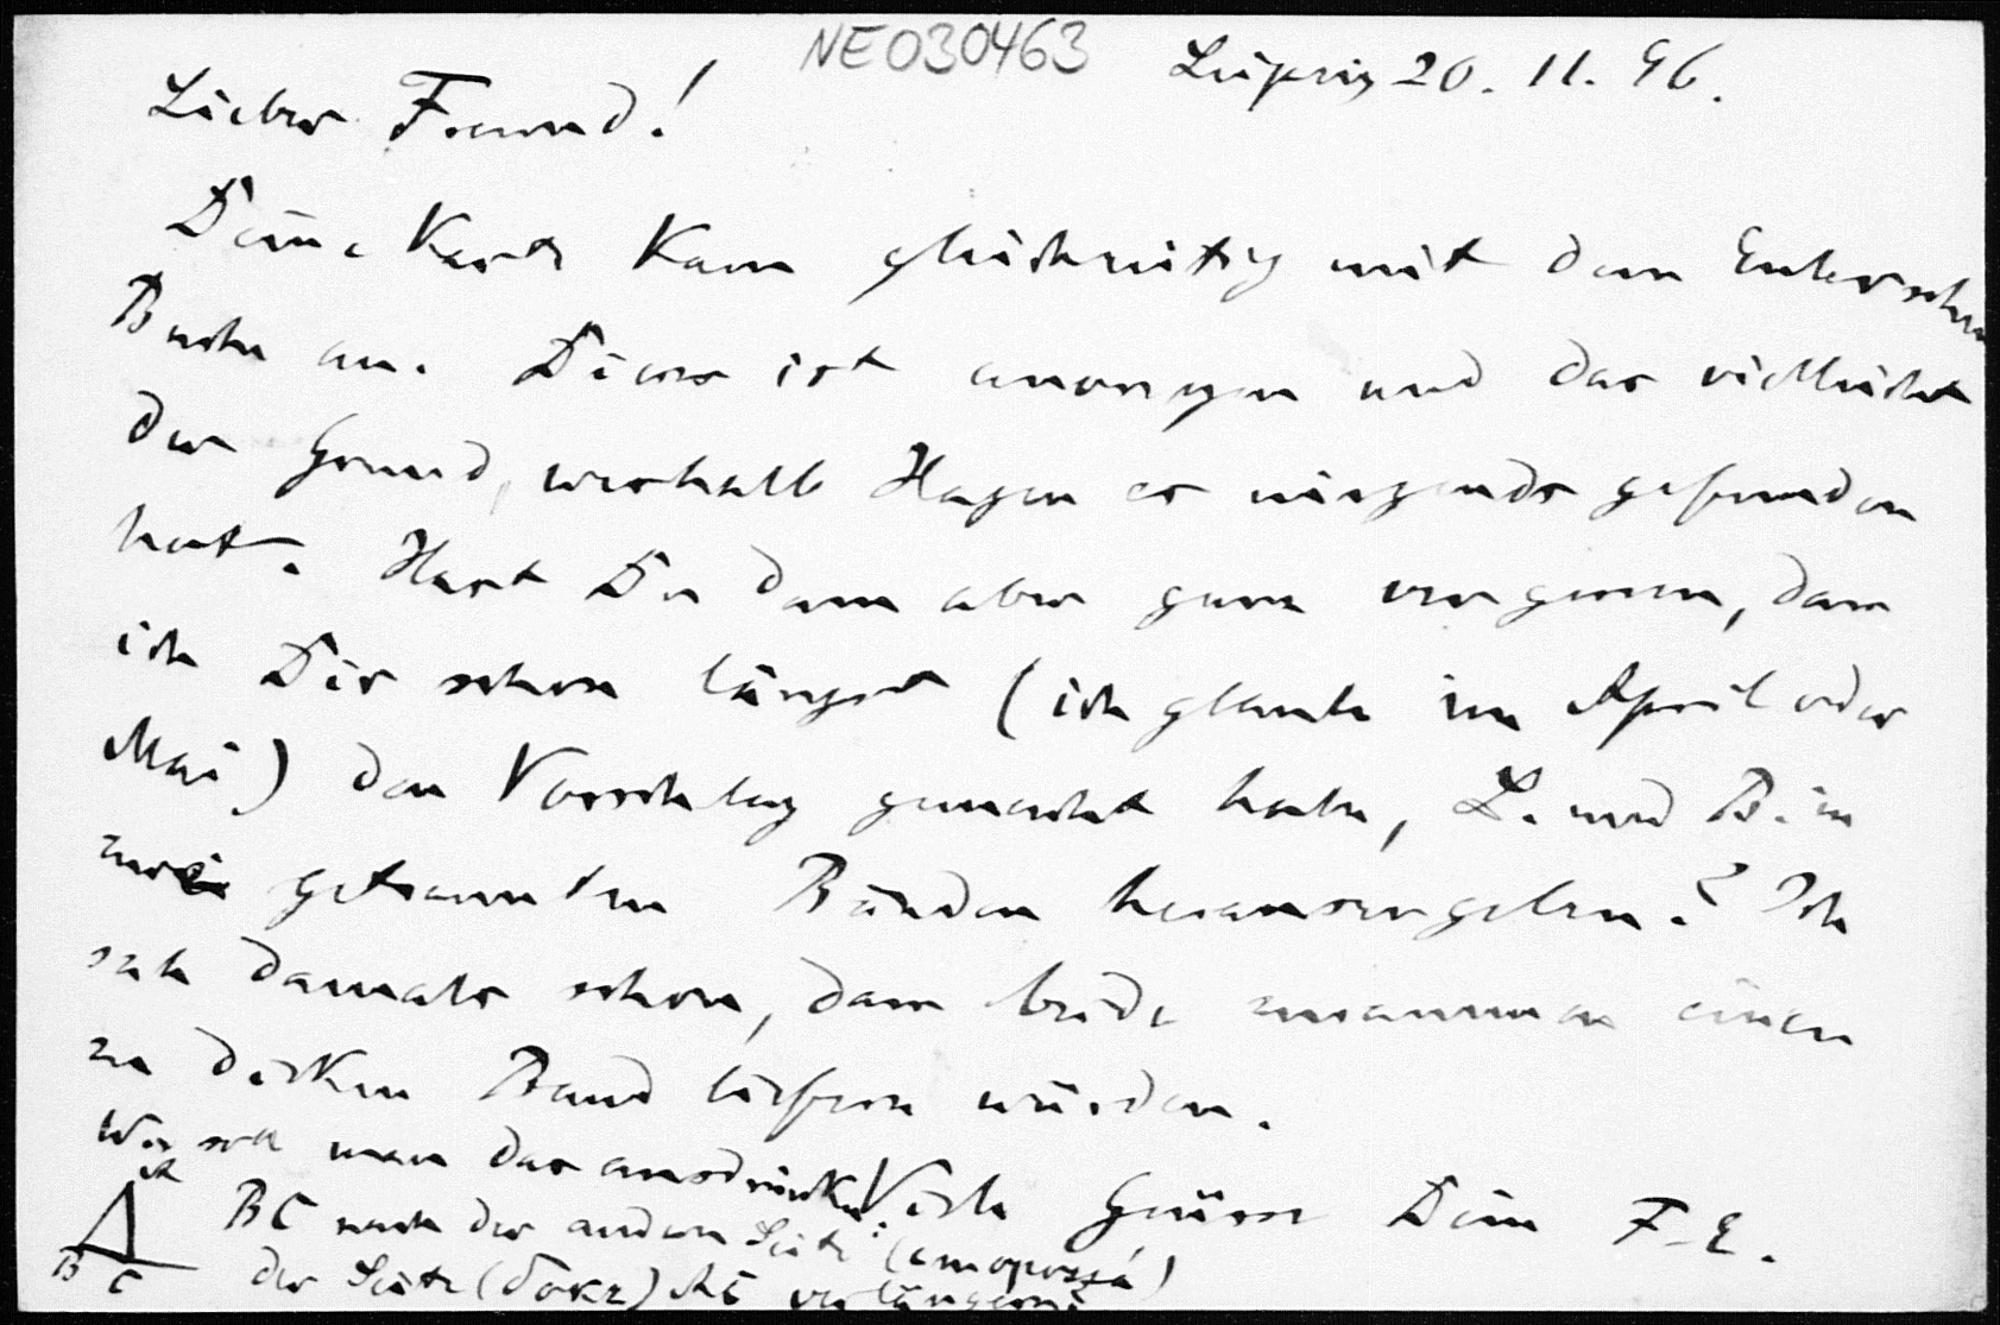 NE030463
Leipzig 20. 11. 96.
Lieber Freund!
Deine Karte kam gleichzeitig mit dem Eulerschen
Buche an. Dieses ist anonym und das vielleicht
der Grund, weshalb Hagen es nirgends gefunden
hat. Hast Du denn aber ganz vergessen, dass
ich Dir schon längst (ich glaube im April oder
Mai) den Vorschlag gemacht habe, L. und B. in
zwei getrennten Bänden herauszugeben? Ich
sah damals schon, dass beide zusammen einen
zu dicken Band liefern würden.
Wie soll man das ausdrücken:
Viele Grüsse Dein F. E.
A
BC nach der andern Seite
B C
der Seite AC verlängern?